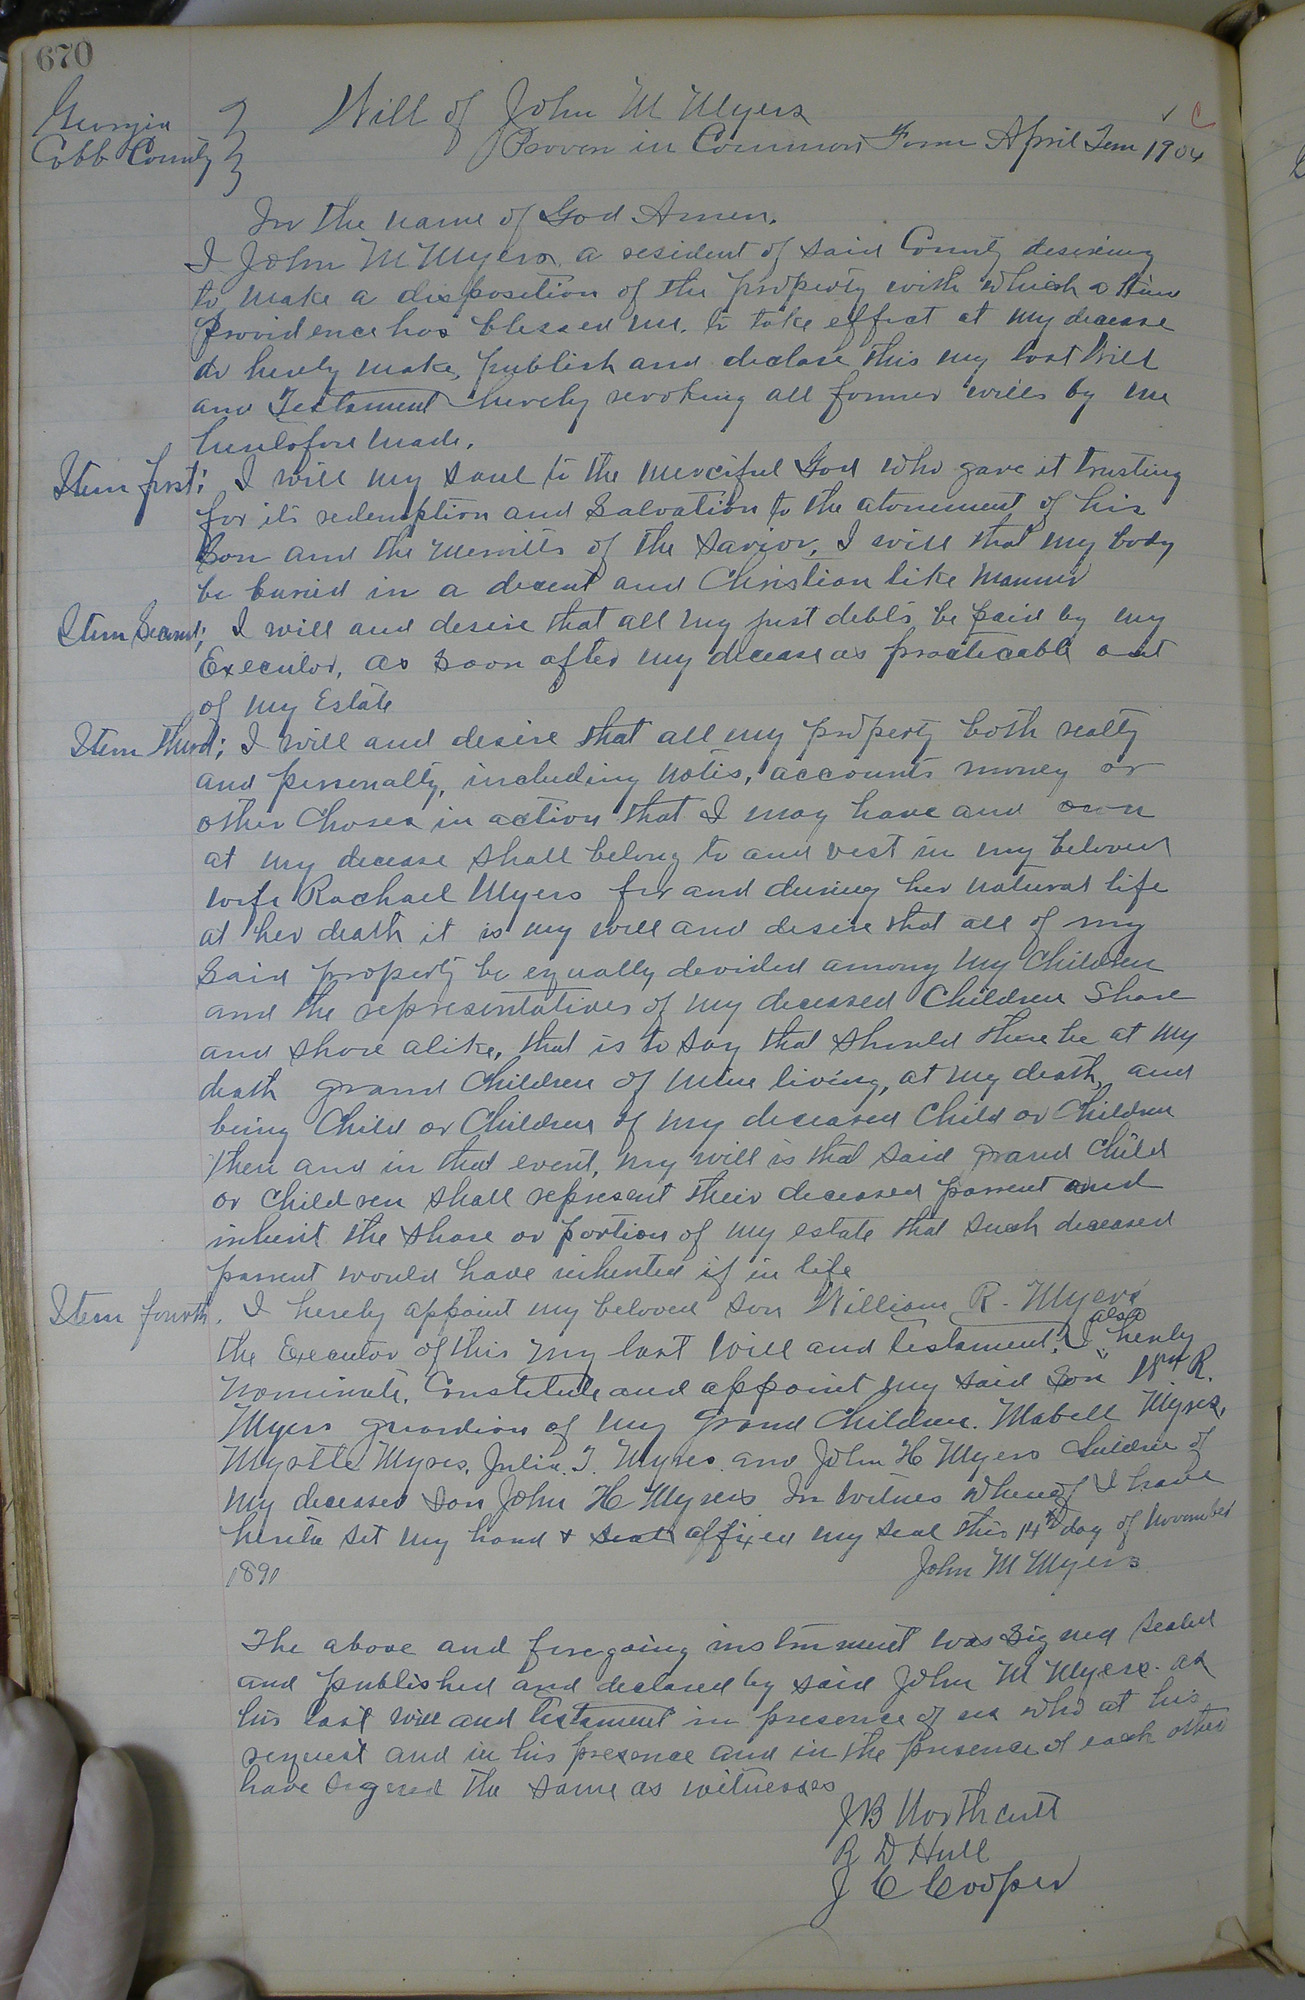 670
Georgia
Cobb County
Will of John M Myers
Proven in Common Form April Term 1904
In the name of God Amen.
I John M Myers a resident of said County desireing
to make a disposition of the property with which a
Providence has blessed me. to take effect at my decease
do hereby make, publish and declare this my last Will
and Testament hereby revoking all former wills by me
heretofore made.
Item first; I will my soul to the merciful God who gave it trusting
for its redemption and Salvation to the atonement of his
Son and the Merrits of the Savior, I will that my body
be buried in a decent and Christian like manner
Item Second; I will and desire that all my just debts be paid by my
Executor, as soon after my decease as practicable out
of my Estate
Item third; I will and desire that all my property both realty
and personalty, including notes, accounts money or
other Choses in action that I may have and own
at my decease shall belong to and vest in my beloved
wife Rachael Myers for and during her natural life
at her death it is my will and desire that all of my
said property be equally devided among my Children
and the representatives of my deceased Children Share
and share alike, that is to say that should there be at my
death grand Children of mine living, at my death, and
being Child or Children of my deceased Child or Children
then and in that event, my will is that said grand Child
or children shall represent their deceased parrent and
inherit the share or portion of my estate that such deceased
parrent would have inherited if in life
Item fourth. I hereby appoint my beloved son William R. Myers
the Executor of this my last Will and testament. I also hereby
nominate, Constitute and appoint my said Son Wm R.
Myers guardian of my Grand Children. Mabell Myres,
Myrtle Myres, Julia. T. Myres and John H Myers Children of
my deceased son John H Myres In witness whereof I have
hereto set my hand & seal affixed my seal this 14th day of November
1891 John M Myers
The above and foregoing instrument was Signed Sealed
and published and declared by said John M Myers. as
his last will and testament in presence of us who at his
request and in his presence and in the presence of each other
have signed the same as witnesses
J B Northcutt
R D Hull
J C Cooper